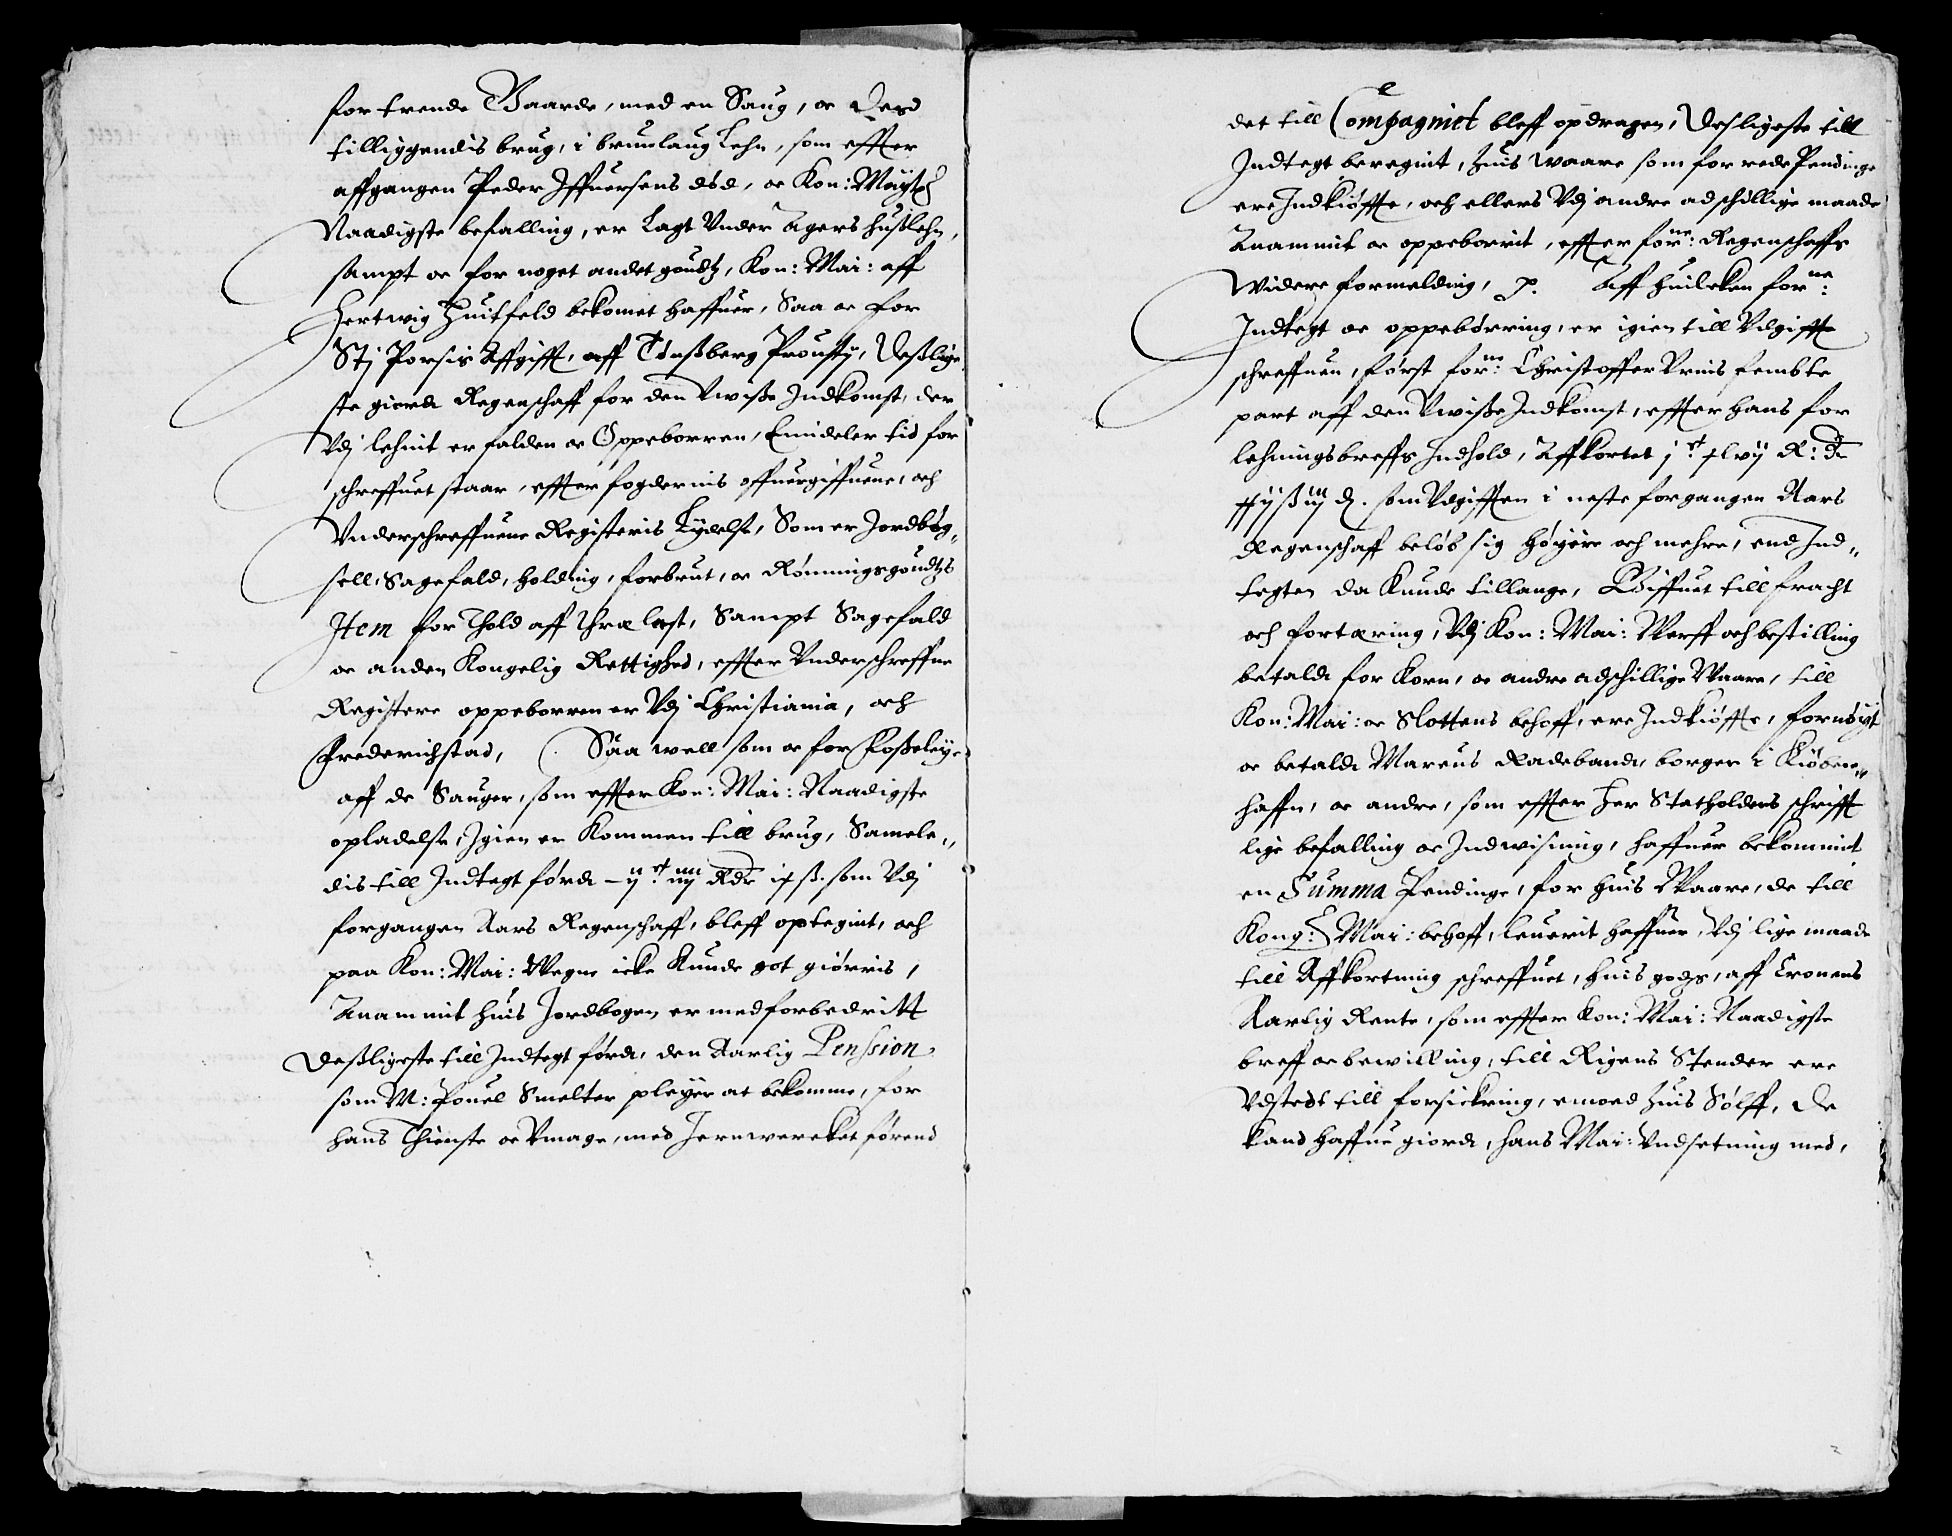 for trende Gaarde, med en Saug, oc Dess
tilliggendis brug, i brunlaug Lehn, som effter
affgangen Peder Iffuersens død, oc Kon: Mayts
Naadigste befalling, er Lagt Vnder Agers hußlehn,
sampt oc for noget andet goudtz, Kon: Mai: aff
Hertwig Huitfeld bekomet haffuer, Saa oc for
Stj Porsis Affgifft, aff Tønßberg Proustj, Deßlige
ste giordt Regenschaff for den Vwiße Indkomst, der
Vdj lehnit er falden oc Oppeborren, Emideler tid for
schreffuet staar, effter fogdernis offuergiffuene, och
Vnderschreffuene Registeris Lydelse, Som er Jordbøg„
sell, Sagefald, holding, forbrut, oc Rømningsgoudtzs
Item for Thold aff thrælast, Sampt Sagefald
oc anden Kongelig Rettighed, effter Vnderschreffne
Registere oppeborren er Vdj Christiania, och
Frederichstad, Saa well som oc for Foßeleye
aff de Sauger, som effter Kon: Mai: Naadigste
opladelse, Igien er Kommen till brug, Samele„
dis till Indtegt førdt – ij c iiij Rdr ix ß. som Vdj
forgangen Aars Regenschaff, bleff optegnit, och
paa Kon: Mai: Wegne icke Kunde got giørris,
Anammit huis Jordbogen er med forbedritt
Deßligeste till Indtegt førdt, den Aarlig Penssion
som M: Pouel Smelter pleyer at bekomme, for
hans Thieniste oc Vmage, med Jernwercket førend
det till Compagniet bleff opdragen, Desligeste till
Indtegt beregnit, huis waare som for rede Pendinge
ere Indkiøffte, och ellers Vdj andre adschillige maade
Anammit oc oppeborrit, effter forne: Regenschaffs
Widere formelding, p. Aff huilcken forne:
Indtegt oc oppebørring, er igien till Vdgifft
schreffuen, først forne: Christoffer Vrnis fembte
part aff den Vwiße Indkomst, effter hans for
lehningsbreffs Indhold, Affkortet j c xlvij R: dr
ß d. som Vdgifften i neste forgangen Aars
Regenschaff beløb sig høyere och mehre, end Ind„
tegten da Kunde tillange, Giffuet till fracht
och fortæring, Vdj Kon: Mai: Werff och bestilling
betaldt for Korn, oc andre adschillige Waare, till
Kon: Mai: oc Slottens behoff, ere Indkiøffte, fornøyt
oc betaldt Marcus Radebandt borger i Kiøben„
haffn, oc andre, som effter Her Statholders schrifft
lige befalling oc Indwisning, haffuer bekommit
en Summa Pendinge, for huis Waare, de till
Kong: Mai: behoff, leuerit haffuer, Vdj lige maade
till Affkortning schreffuet, huis godz, aff Cronens
Aarlig Rente, som effter Kon: Mai: Naadigste
breff oc bewilling, till Rigens Stender ere
Vdstedt till forsickring, emoed huis Sølff, De
kand haffue giordt, hans Mai: Vndsetning med,